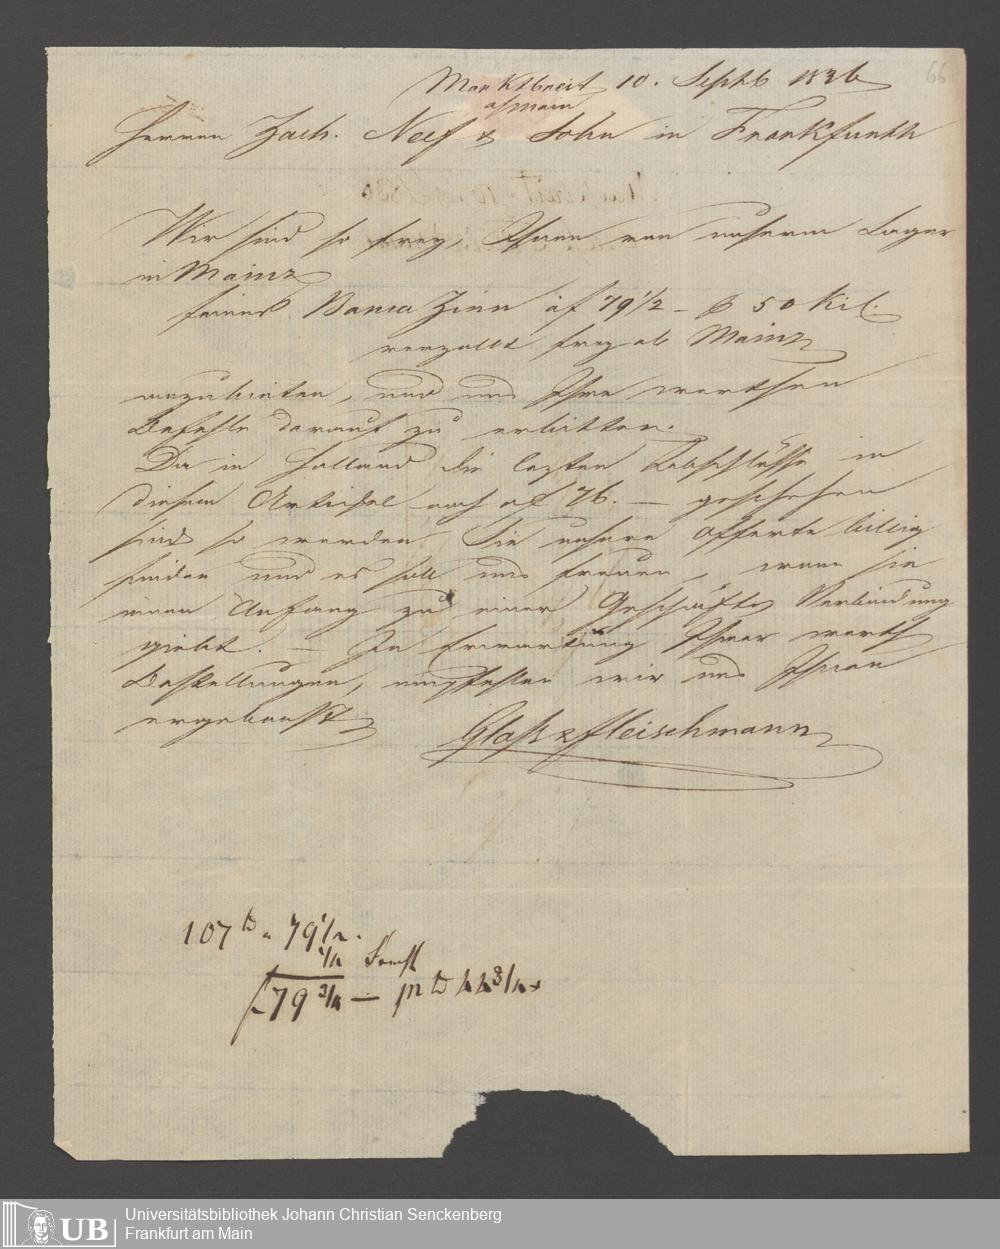 66
Marktbreit 10. Septb 1836
a/Main
Herren Zach. Neef & Sohn in Frankfurth
Wir sind so frey, Ihnen von unserm Lager
in Mainz
feines Banca Zinn à f 79 1/2 – 50 Kil.
verzollt frey ab Mainz
anzubieten, und uns Ihre werthen
Befehle darauf zu erbitten.
Da in Holland die lezten Abschlüsse in
diesem Artickel noch a f 76. – geschehen
sind so werden Sie unsere Offerte billig
finden und es soll uns freuen, wenn sie
einen Anfang zu einer Geschäfts Verbindung
giebt. – In Erwartung Ihrer werth
Bestellungen, empfehlen wir uns Ihnen
ergebenst
Glaß & Fleischmann
107 79 1/2.
1/4
79 3/4 –
UB
Universitätsbibliothek Johann Christian Senckenberg
Frankfurt am Main